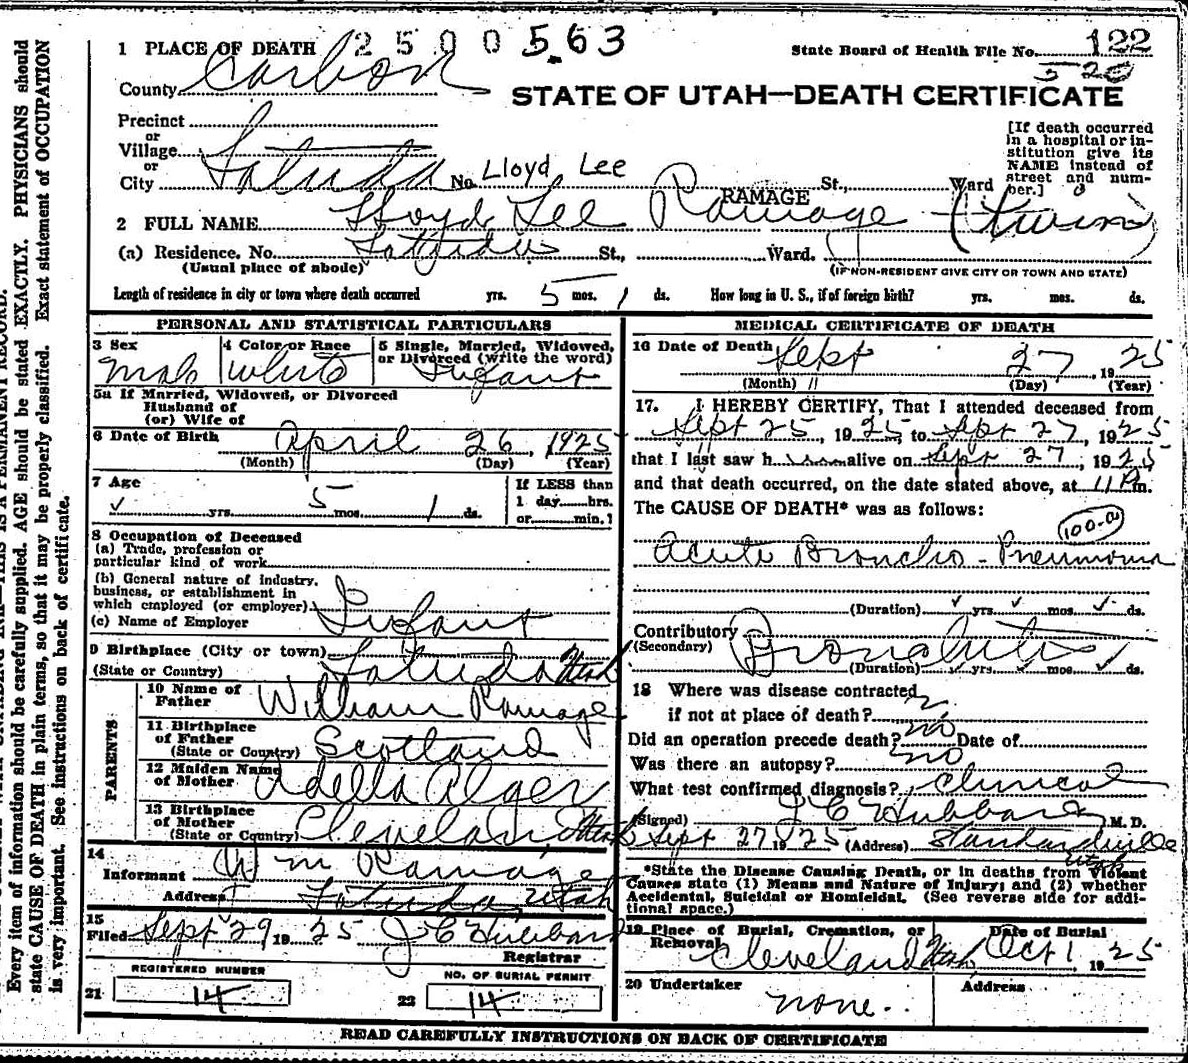 1 PLACE OF DEATH 2500563 State Board of Health File No. 122
520
County Carbon
STATE OF UTAH—DEATH CERTIFICATE
Precinct
or
Village
or
City Latuda No. Lloyd Lee St., Ward
[If death occurred
in a hospital or in-
stitution give its
NAME instead of
street and num-
ber.]
RAMAGE
2 FULL NAME Lloyd Lee Ramage (twin)
(a) Residence, No. Latuda St., Ward.
(Usual place of abode) (IF NON-RESIDENT GIVE CITY OR TOWN AND STATE)
Length of residence in city or town where death occurred yrs. 5 mos. 1 ds. How long in U. S., if of foreign birth? yrs. mos. ds.
PERSONAL AND STATISTICAL PARTICULARS
3 Sex 4 Color or Race 5 Single, Married, Widowed,
or Divorced (write the word)
Male white Infant
5a If Married, Widowed, or Divorced
Husband of
(or) Wife of
6 Date of Birth April 26, 1925
(Month) (Day) (Year)
7 Age
✓ yrs. 5 mos. 1 ds.
If LESS than
1 day hrs.
or min.
8 Occupation of Deceased
(a) Trade, profession or
particular kind of work
(b) General nature of industry,
business, or establishment in
which employed (or employer)
(c) Name of Employer Infant
9 Birthplace (City or town)
(State or Country) Latuda Utah
PARENTS
10 Name of
Father William Ramage
11 Birthplace
of Father
(State or Country) Scotland
12 Maiden Name
of Mother Adella Alger
13 Birthplace
of Mother
(State or Country) Cleveland, Utah
14
Informant Wm Ramage
Address Latuda, Utah
15
Filed Sept 29 1925 J C Hubbard
Registrar
REGISTERED NUMBER NO. OF BURIAL PERMIT
21 14 22 14
MEDICAL CERTIFICATE OF DEATH
16 Date of Death Sept 27, 1925
(Month) (Day) (Year)
17. I HEREBY CERTIFY, That I attended deceased from
Sept 25, 1925, to Sept 27, 1925
that I last saw h alive on Sept 27, 1925
and that death occurred, on the date stated above, at 11 P m.
The CAUSE OF DEATH* was as follows:
100-a
Acute Broncho-Pneumonia
(Duration) ✓ yrs. ✓ mos. ✓ ds.
Contributory Bronchitis
(Secondary)
(Duration) ✓ yrs. ✓ mos. ✓ ds.
18 Where was disease contracted
if not at place of death?
Did an operation precede death? no Date of
Was there an autopsy? no
What test confirmed diagnosis? Clinical
(Signed) J C Hubbard M.D.
Sept 27 1925 (Address) Standardville
Utah
*State the Disease Causing Death, or in deaths from Violent
Causes state (1) Means and Nature of Injury; and (2) whether
Accidental, Suicidal or Homicidal. (See reverse side for addi-
tional space.)
19 Place of Burial, Cremation, or
Removal
Date of Burial
Cleveland Utah Oct 1, 1925
20 Undertaker Address
none.
READ CAREFULLY INSTRUCTIONS ON BACK OF CERTIFICATE
Every item of information should be carefully supplied. AGE should be stated EXACTLY. PHYSICIANS should
state CAUSE OF DEATH in plain terms, so that it may be properly classified. Exact statement of OCCUPATION
is very important. See instructions on back of certificate.